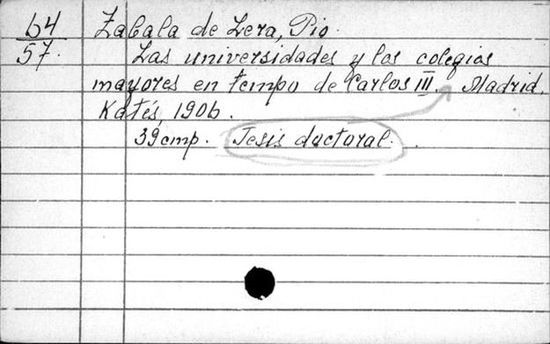 64 Zabala de Lera, Pio.
57. Las universidades y los colegios
mayores en tempo de Carlos III. Madrid.
Katés, 1906.
39cmp. Tesis doctoral.